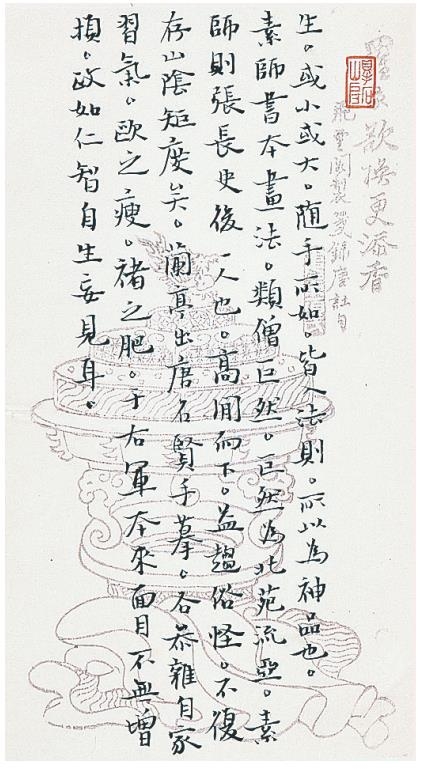 衣欲換更添香
飛雲閣製箋錄唐句
生。或小或大。随手所如。皆入法則。所以為神品也。
素師書本畫法。類僧巨然。巨然為北苑流亞。素
師則張長史後一人也。高閒而下。益趨俗怪。不復
存山陰矩度矣。蘭亭出唐名賢手摹。各參雜自家
習氣。歐之瘦。褚之肥。于右軍本來面目不無增
損。政如仁智自生妄見耳。